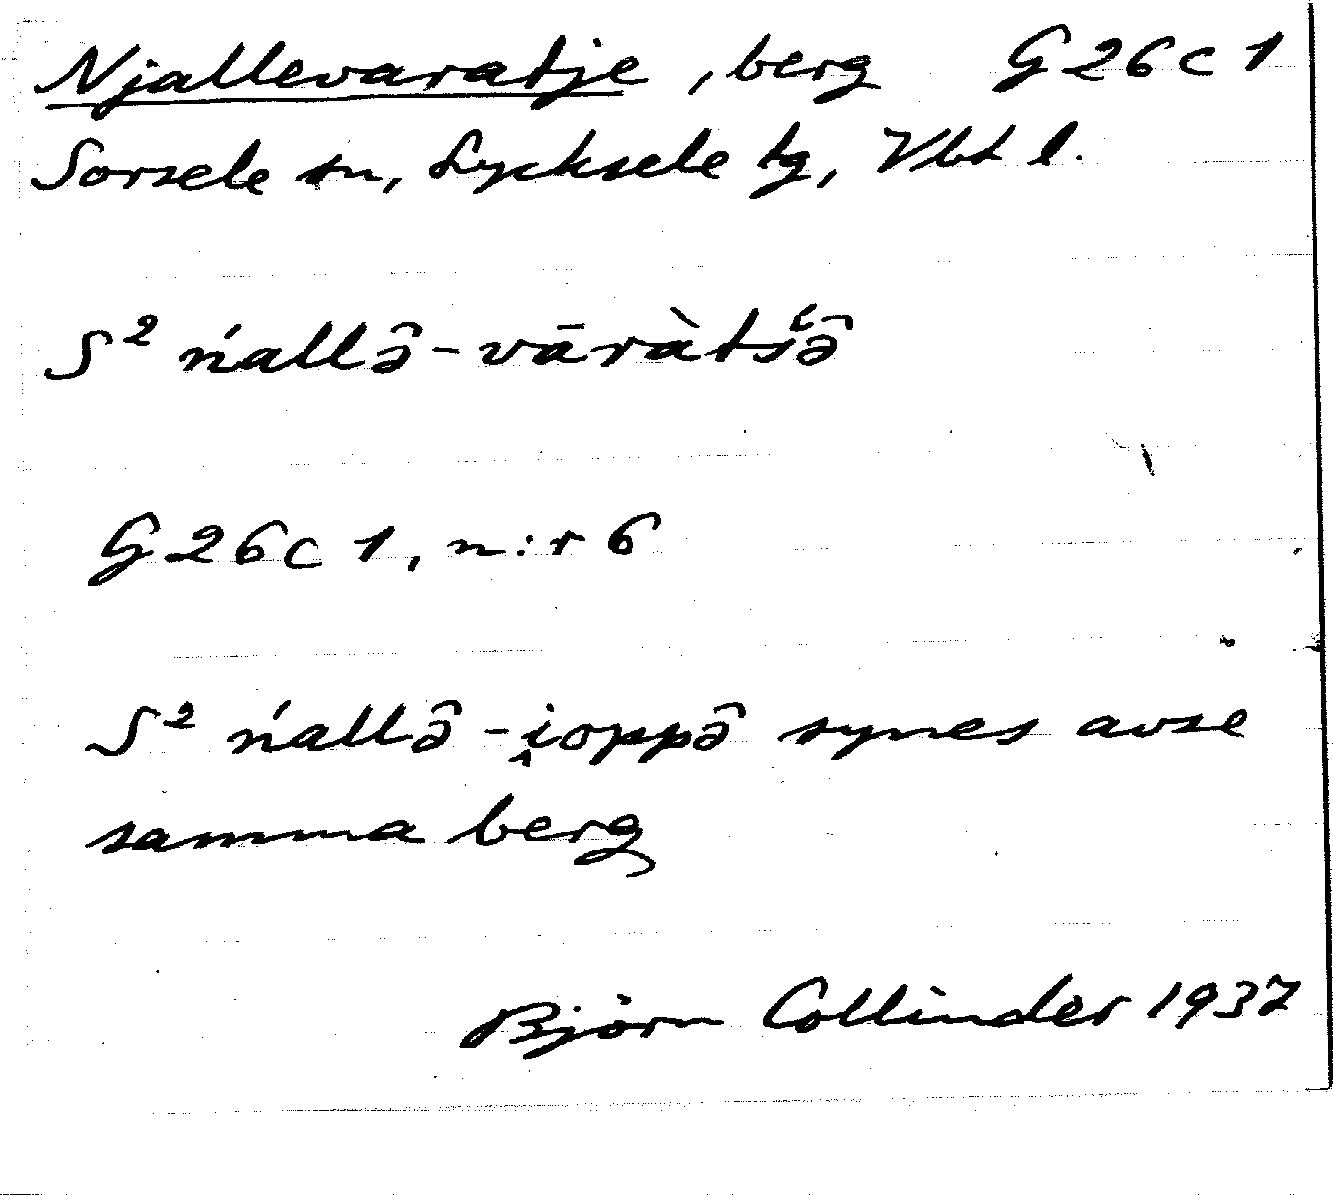 Njallevaratje, berg G26c1
Sorsele sn, Lycksele tg, Vbt l.
S² ńallə̂-vāràtś̜ə̂
G26c1, n:r 6
S² ńallə̂-i̭oppə̂ synes avse
samma berg
Björn Collinder 1937